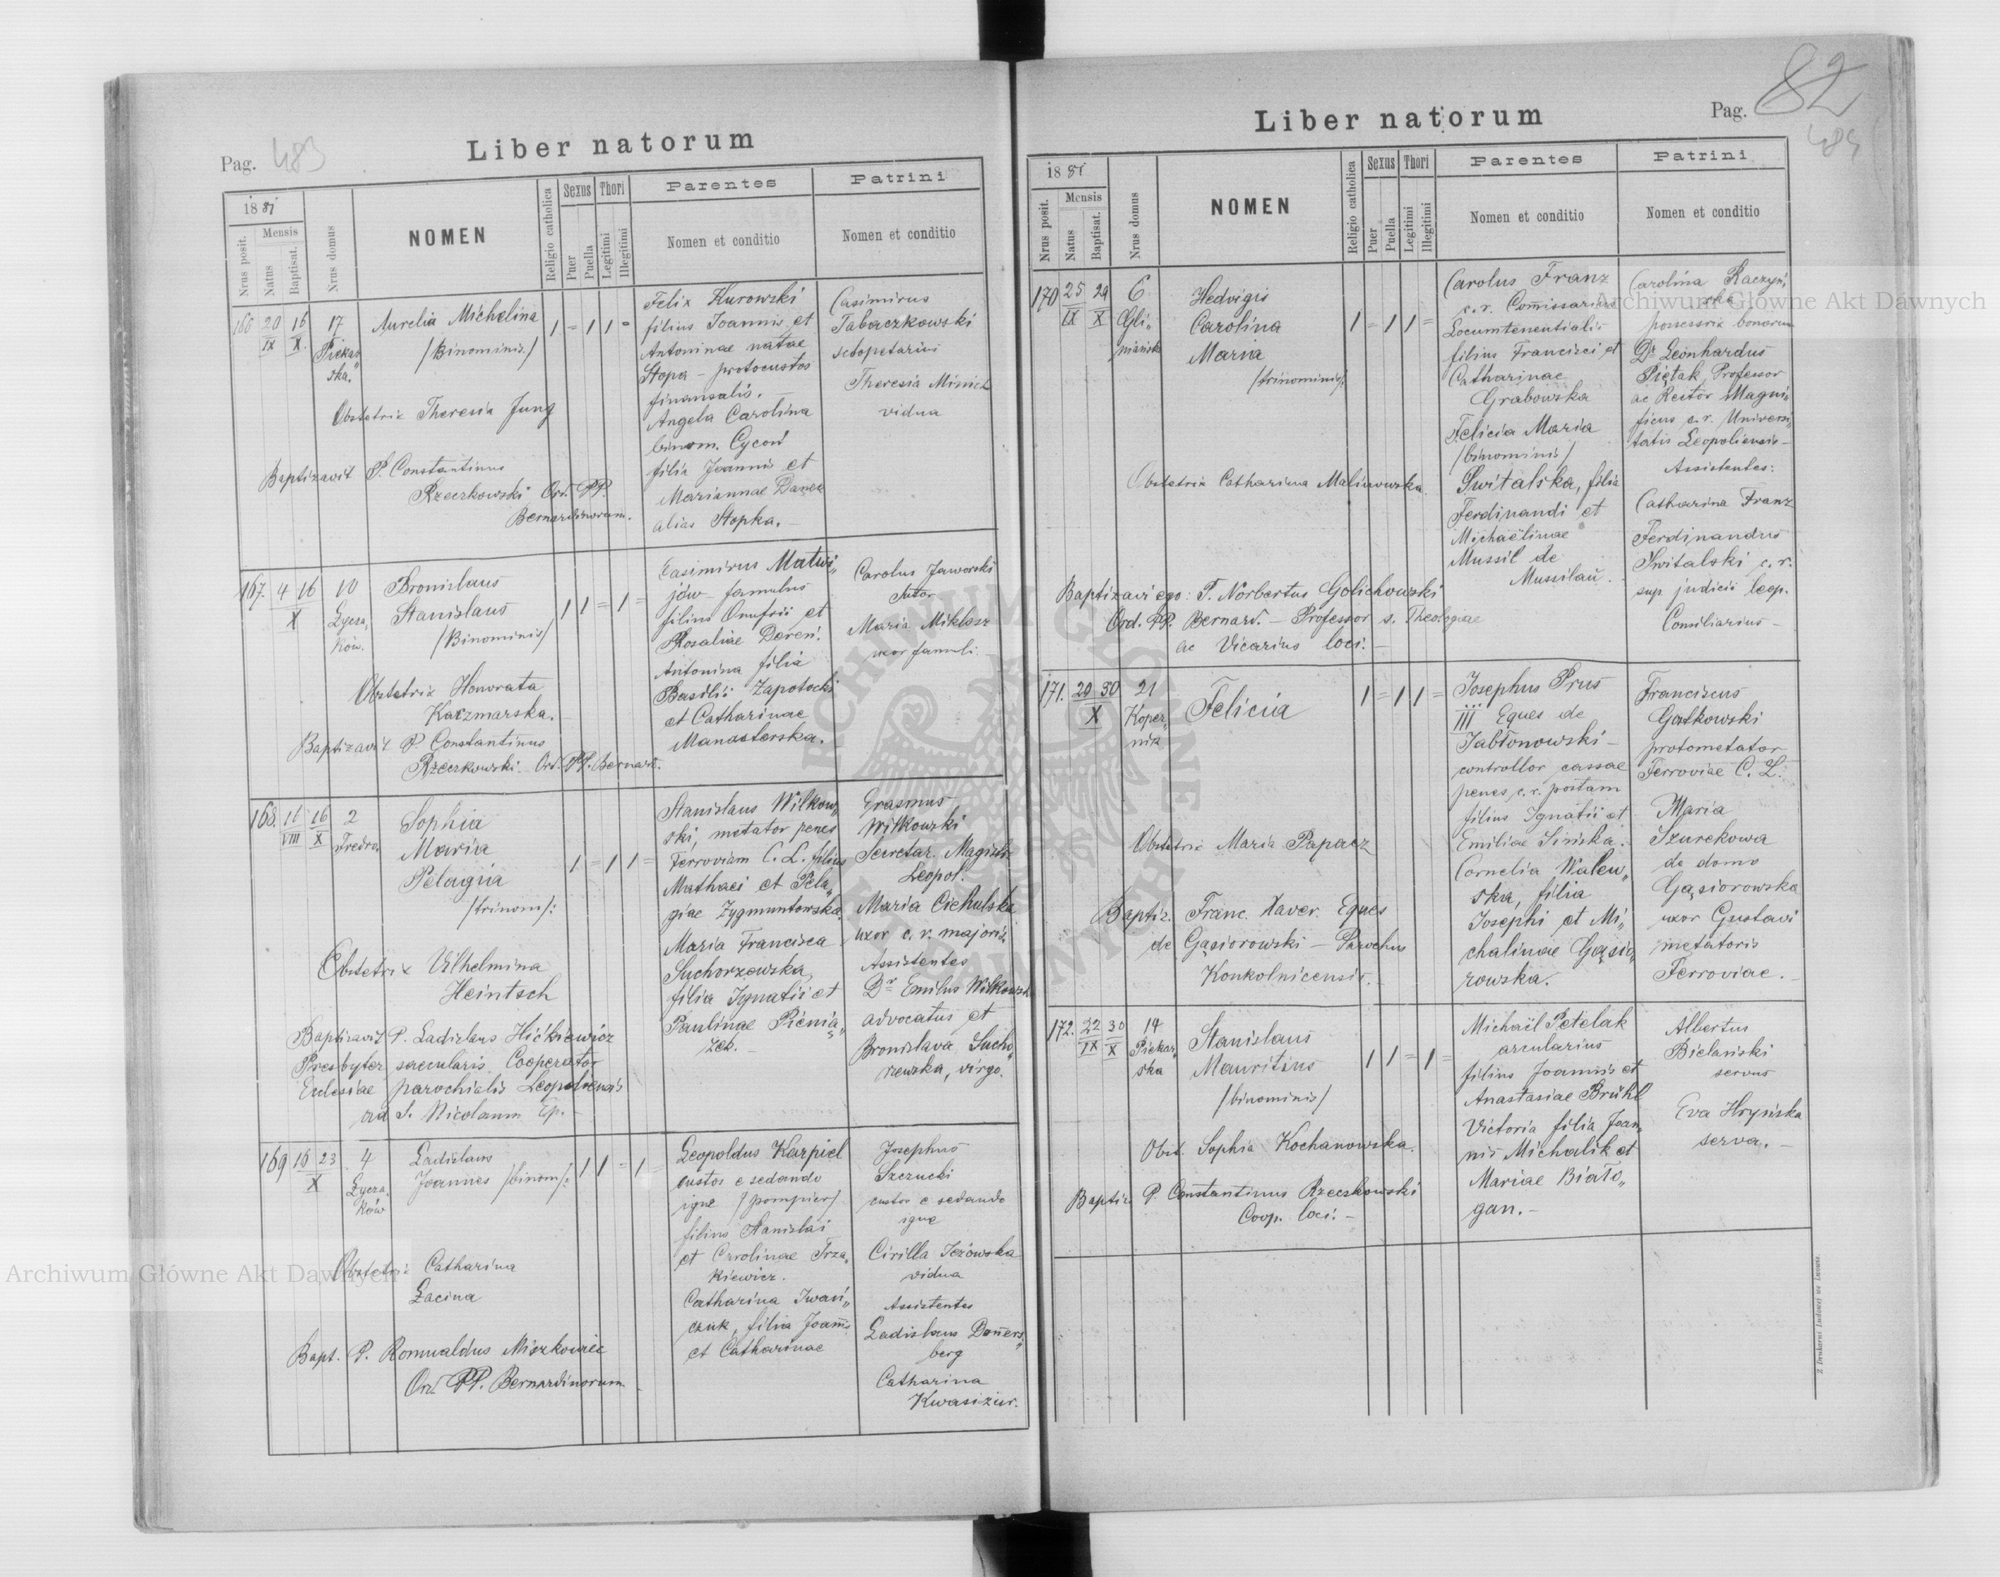 82
Pag. 483
Liber natorum
1881
Nrus posit.
Mensis
Natus
Baptisat.
Nrus domus
NOMEN
Religio catholica
Sexus
Puer
Puella
Thori
Legitimi
Illegitimi
Parentes
Nomen et conditio
Patrini
Nomen et conditio
166 20 16 17
IX X
Piekar„
ska.
Aurelia Michelina
/Binominis/
1 = 1 1 =
Obstetrix Theresia Jung
Baptizavit P. Constantinus
Rzeczkowski Ord. PP.
Bernardinorum.
Felix Kurowski
filius Joannis et
Antoninae natae
Stopa – protocustos
finansalis.
Angela Carolina
binom. Cycoń
filia Joannis et
Mariannae Danek
alias Stopka.
Casimirus
Tabaczkowski
sctopetarius
Theresia Minich
vidua
167. 4 16 10
X
Łycza„
ków.
Bronislaus
Stanislaus
/Binominis/
1 1 = 1 =
Obstetrix Honorata
Kaczmarska.
Baptizavit P. Constantinus
Rzeczkowski Ord. PP. Bernard.
Casimirus Matwi„
jów – famulus
filius Onufrii et
Rosaliae Dereń.
Antonina filia
Basilii Zapotocki
et Catharinae
Manasterska.
Carolus Jaworski
sutor
Maria Miklasz
uxor famuli
168. 11 16 2
VIII X Fredra
Sophia
Maria
Pelagia
/trinom/:
1 = 1 1 =
Obstetrix Vilhelmina
Heintsch
Baptizavit P. Ladislaus Hićkiewicz
Presbyter saecularis Cooperator
Ecclesiae parochialis Leopoliensis
ad S. Nicolaum Ep. –
Stanislaus Wilkow„
ski, metator penes
Ferroviam C. L. filius
Mathaei et Pela„
giae Zygmuntowska
Maria Francisca
Suchorzewska
filia Ignatii et
Paulinae Pienią„
żek. –
Erasmus
Wilkowski
Secretar. Magistr.
Leopol.
Maria Cichulska
uxor c. r. majoris
Assistentes
Dr Emilus Wilkowski
advocatus et
Bronislava Sucho„
rzewska, virgo.
169 16 23 4
X
Łycza„
ków
Ladislaus
Joannes /binom/:
1 1 = 1
Obstetrix Catharina
Łacina
Bapt. P. Romualdus Miszkowicz
Ord. PP. Bernardinorum
Leopoldus Karpiel
custos e sedando
igne /pompier/
filius Stanislai
et Carolinae Trza„
kiewicz.
Catharina Iwań„
czuk, filia Joannis
et Catharinae
Josephus
Szczucki
custos e sedando
igne
Cirilla Jeżowska
vidua
Assistentes
Ladislaus Donners„
berg
Catharina
Kwasizur.
Liber natorum
Pag. 484
1881
Nrus posit.
Mensis
Natus
Baptisat.
Nrus domus
NOMEN
Religio catholica
Sexus
Puer
Puella
Thori
Legitimi
Illegitimi
Parentes
Nomen et conditio
Patrini
Nomen et conditio
170 25 29 6
IX X
Gli„
niańska
Hedvigis
Carolina
Maria
/trinominis/:
1 = 1 1 =
Obstetrix Catharina Malinowska
Baptizavi ego: P. Norbertus Golichowski
Ord. PP. Bernard. – Professor s. Theologiae
ac Vicarius loci. –
Carolus Franz
c. r. Comissarius
Locumtenentialis
filius Francisci et
Catharinae
Grabowska
Felicia Maria
/binominis/
Switalska, filia
Ferdinandi et
Michaëlinae
Mussil de
Mussilau.
Carolina Raczyń„
ska
possessrix bonorum
Dr Leonhardus
Piętak Professor
ac Rector Magni„
ficus c. r. Universi„
tatis Leopoliensis –
Assistentes:
Catharina Franz
Ferdinandus
Switalski c. r.
sup. judicii leop.
Consiliarius –
171. 29 30 21
X
Koper„
nik
Felicia
1 = 1 1 =
Obstetrix Maria Papacz
Baptiz. Franc. Xaver. Eques
de Gąsiorowski – Parochus
Konkolnicensis.
Josephus Prus
III Eques de
Jabłonowski –
controllor cassae
penes c. r. postam
filius Ignatii et
Emiliae Sińska.
Cornelia Walew„
ska, filia
Josephi et Mi„
chalinae Gąsio„
rowska.
Franciscus
Gatkowski
protometator
Ferroviae C. L.
Maria
Szurekowa
de domo
Gąsiorowska
uxor Gustavi
metatoris
Ferroviae. –
172. 22 30 14
IX X
Piekar„
ska
Stanislaus
Mauritius
/binominis/
1 1 = 1 =
Obst. Sophia Kochanowska
Baptiz. P. Constantinus Rzeczkowski
Coop. loci. –
Michaël Petelak
arcularius
filius Joannis et
Anastasiae Brühl
Victoria filia Joan„
nis Michalik et
Mariae Biało„
gan. –
Albertus
Bielański
servus
Eva Hryńska
serva. –
Z Drukarni Ludowej we Lwowie.
Archiwum Główne Akt Dawnych
Archiwum Główne Akt Dawnych
ARCHIWUM GŁÓWNE AKT DAWNYCH